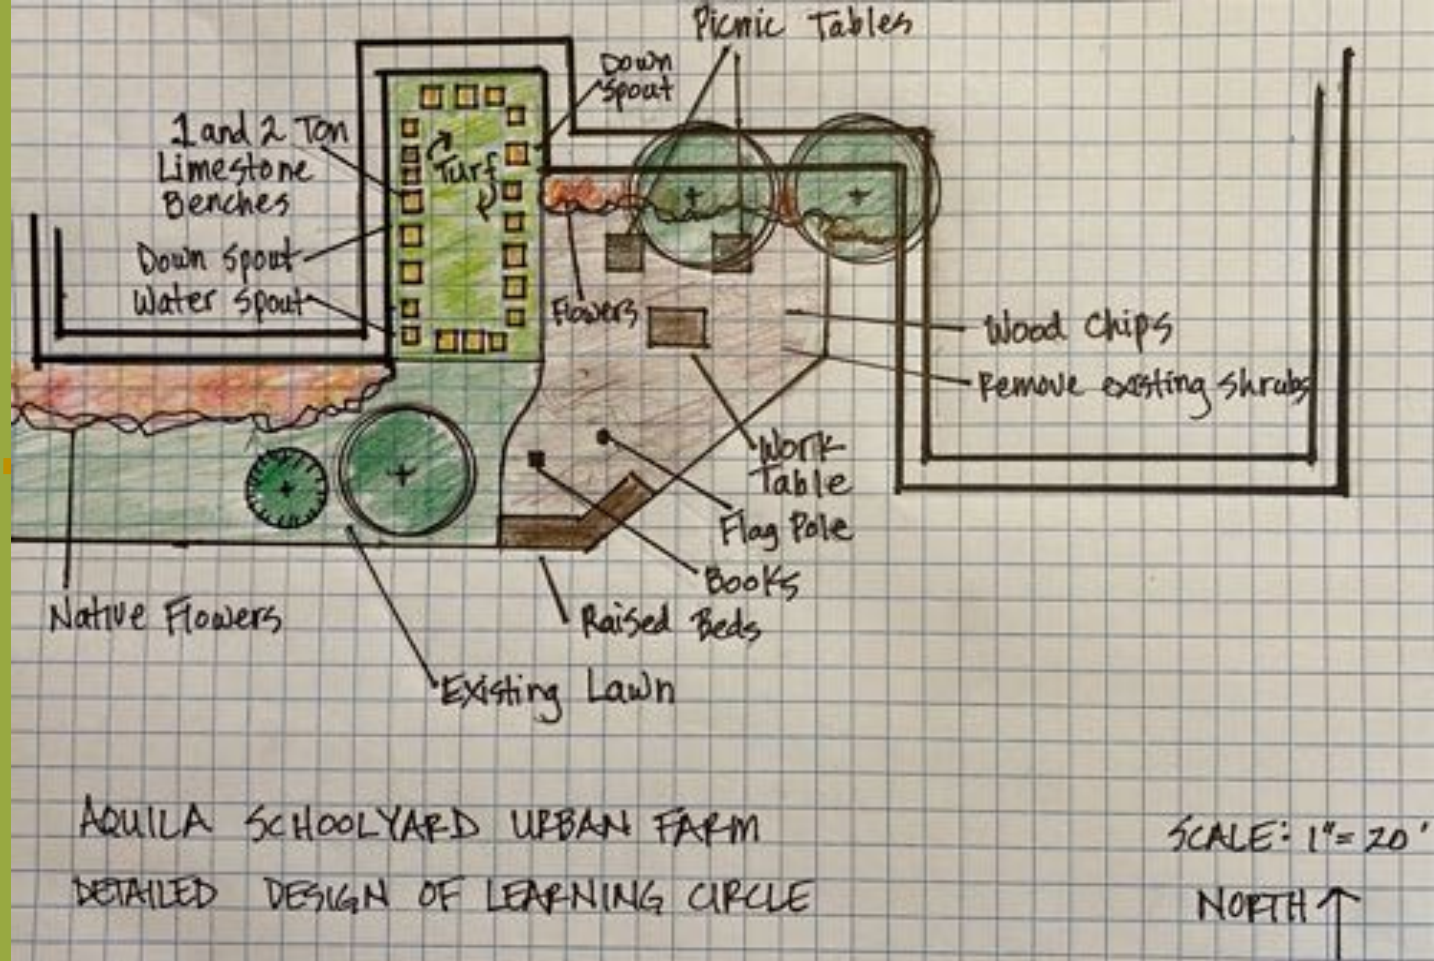 Picnic Tables
Down
Spout
1 and 2 Ton
Limestone
Benches
Turf
Down Spout
Water Spout
Flowers
Wood Chips
Remove existing shrubs
Work
Table
Flag Pole
Books
Raised Beds
Native Flowers
Existing Lawn
AQUILA SCHOOLYARD URBAN FARM
DETAILED DESIGN OF LEARNING CIRCLE
SCALE: 1"= 20'
NORTH